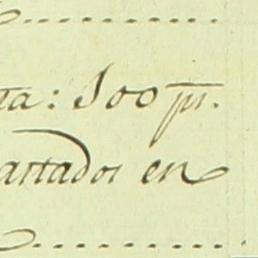 ta: 100 ps.
artados en